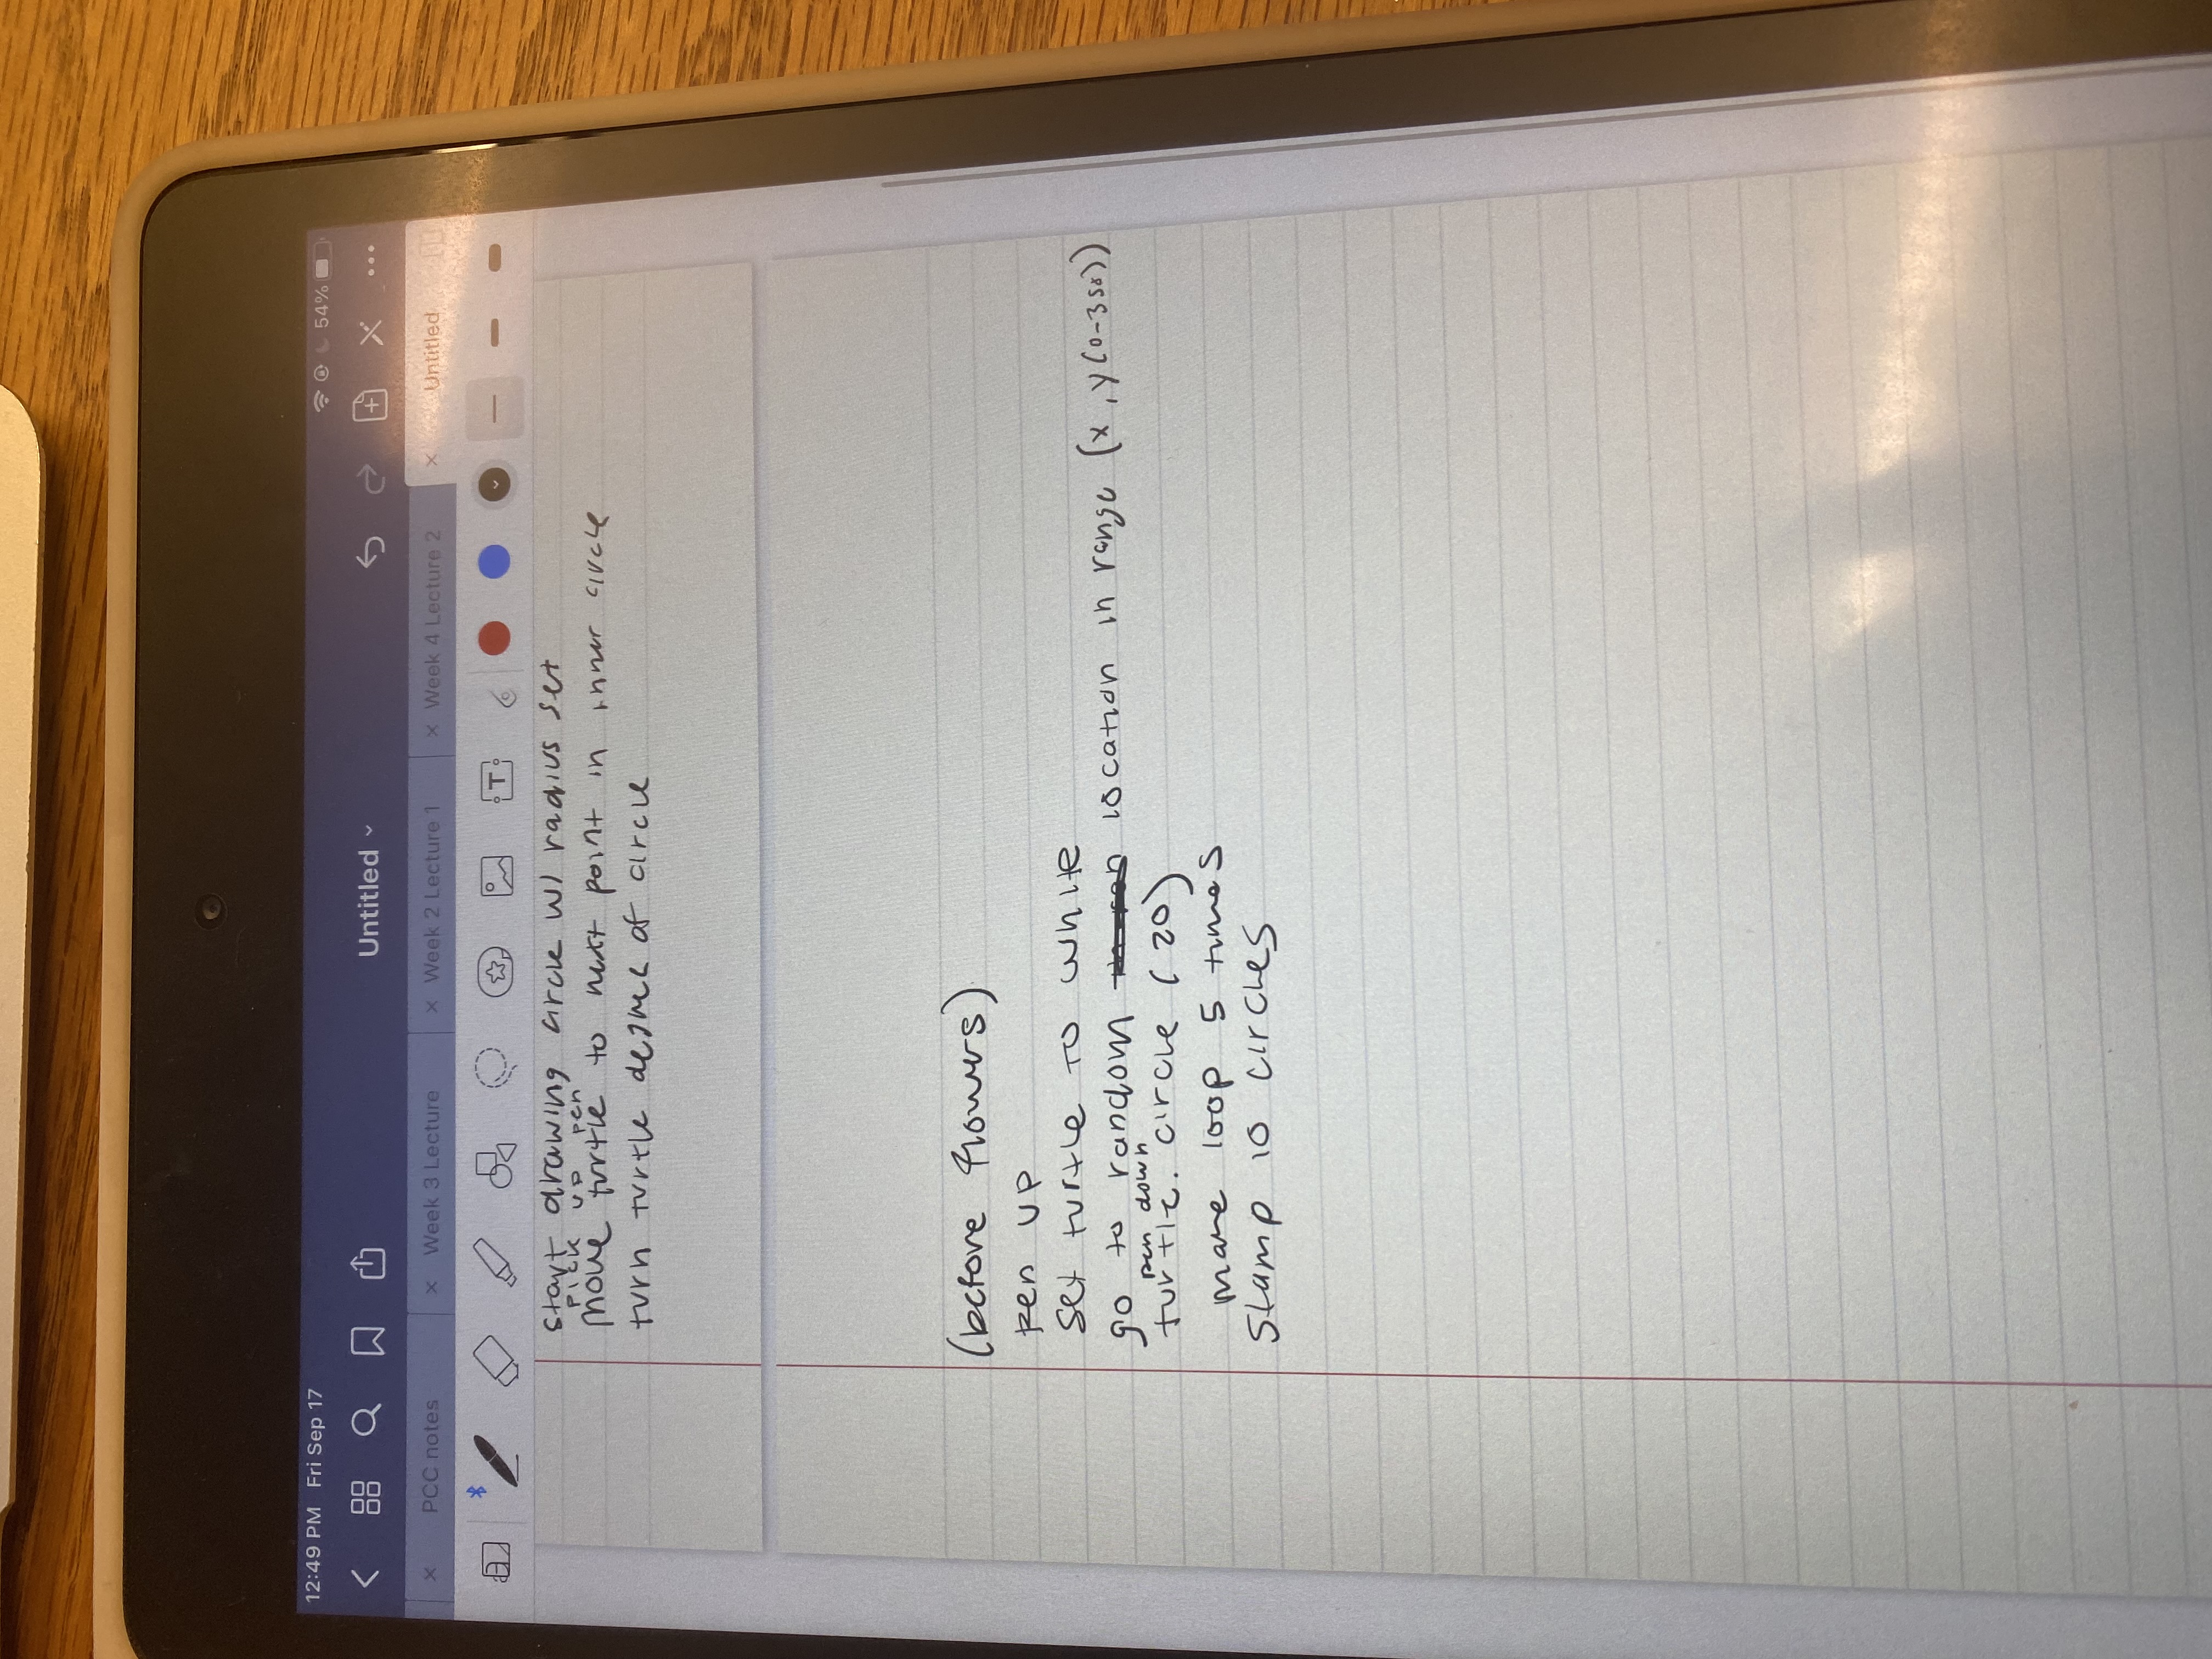 12:49 PM Fri Sep 17
54%
Untitled
PCC notes
Week 3 Lecture
Week 2 Lecture 1
Week 4 Lecture 2
Untitled
start drawing circle w/ radius set
pick up pen
move turtle to next point in inner circle
turn turtle degree of circle
(before flowers)
pen up
set turtle to white
go to random location in range (x, y(0-350))
pen down
turtle. circle (20)
make loop 5 times
stamp 10 circles